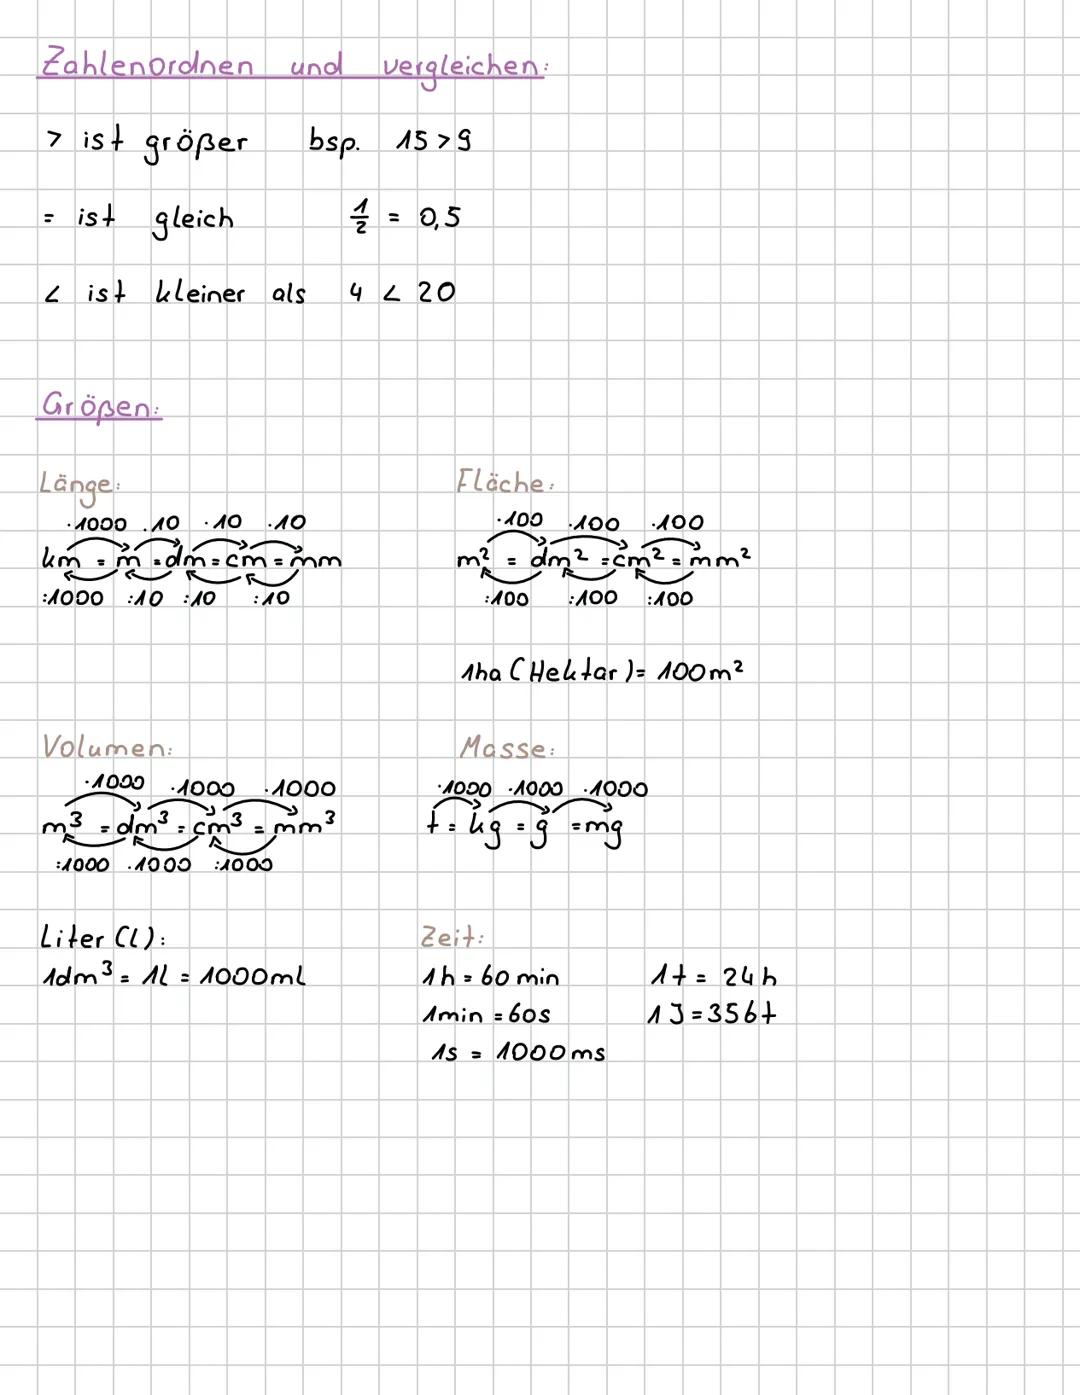 Zahlenordnen und vergleichen:
> ist größer bsp. 15 > 9
= ist gleich 1/2 = 0,5
< ist kleiner als 4 < 20
Größen:
Länge:
·1000 ·10 ·10 ·10
km = m = dm = cm = mm
:1000 :10 :10 :10
Fläche:
·100 ·100 ·100
m² = dm² = cm² = mm²
:100 :100 :100
1ha (Hektar) = 100m²
Volumen:
·1000 ·1000 ·1000
m³ = dm³ = cm³ = mm³
:1000 ·1000 :1000
Masse:
·1000 ·1000 ·1000
t = kg = g = mg
Liter (l):
1dm³ = 1l = 1000ml
Zeit:
1h = 60 min 1t = 24h
1min = 60s 1J = 356t
1s = 1000ms